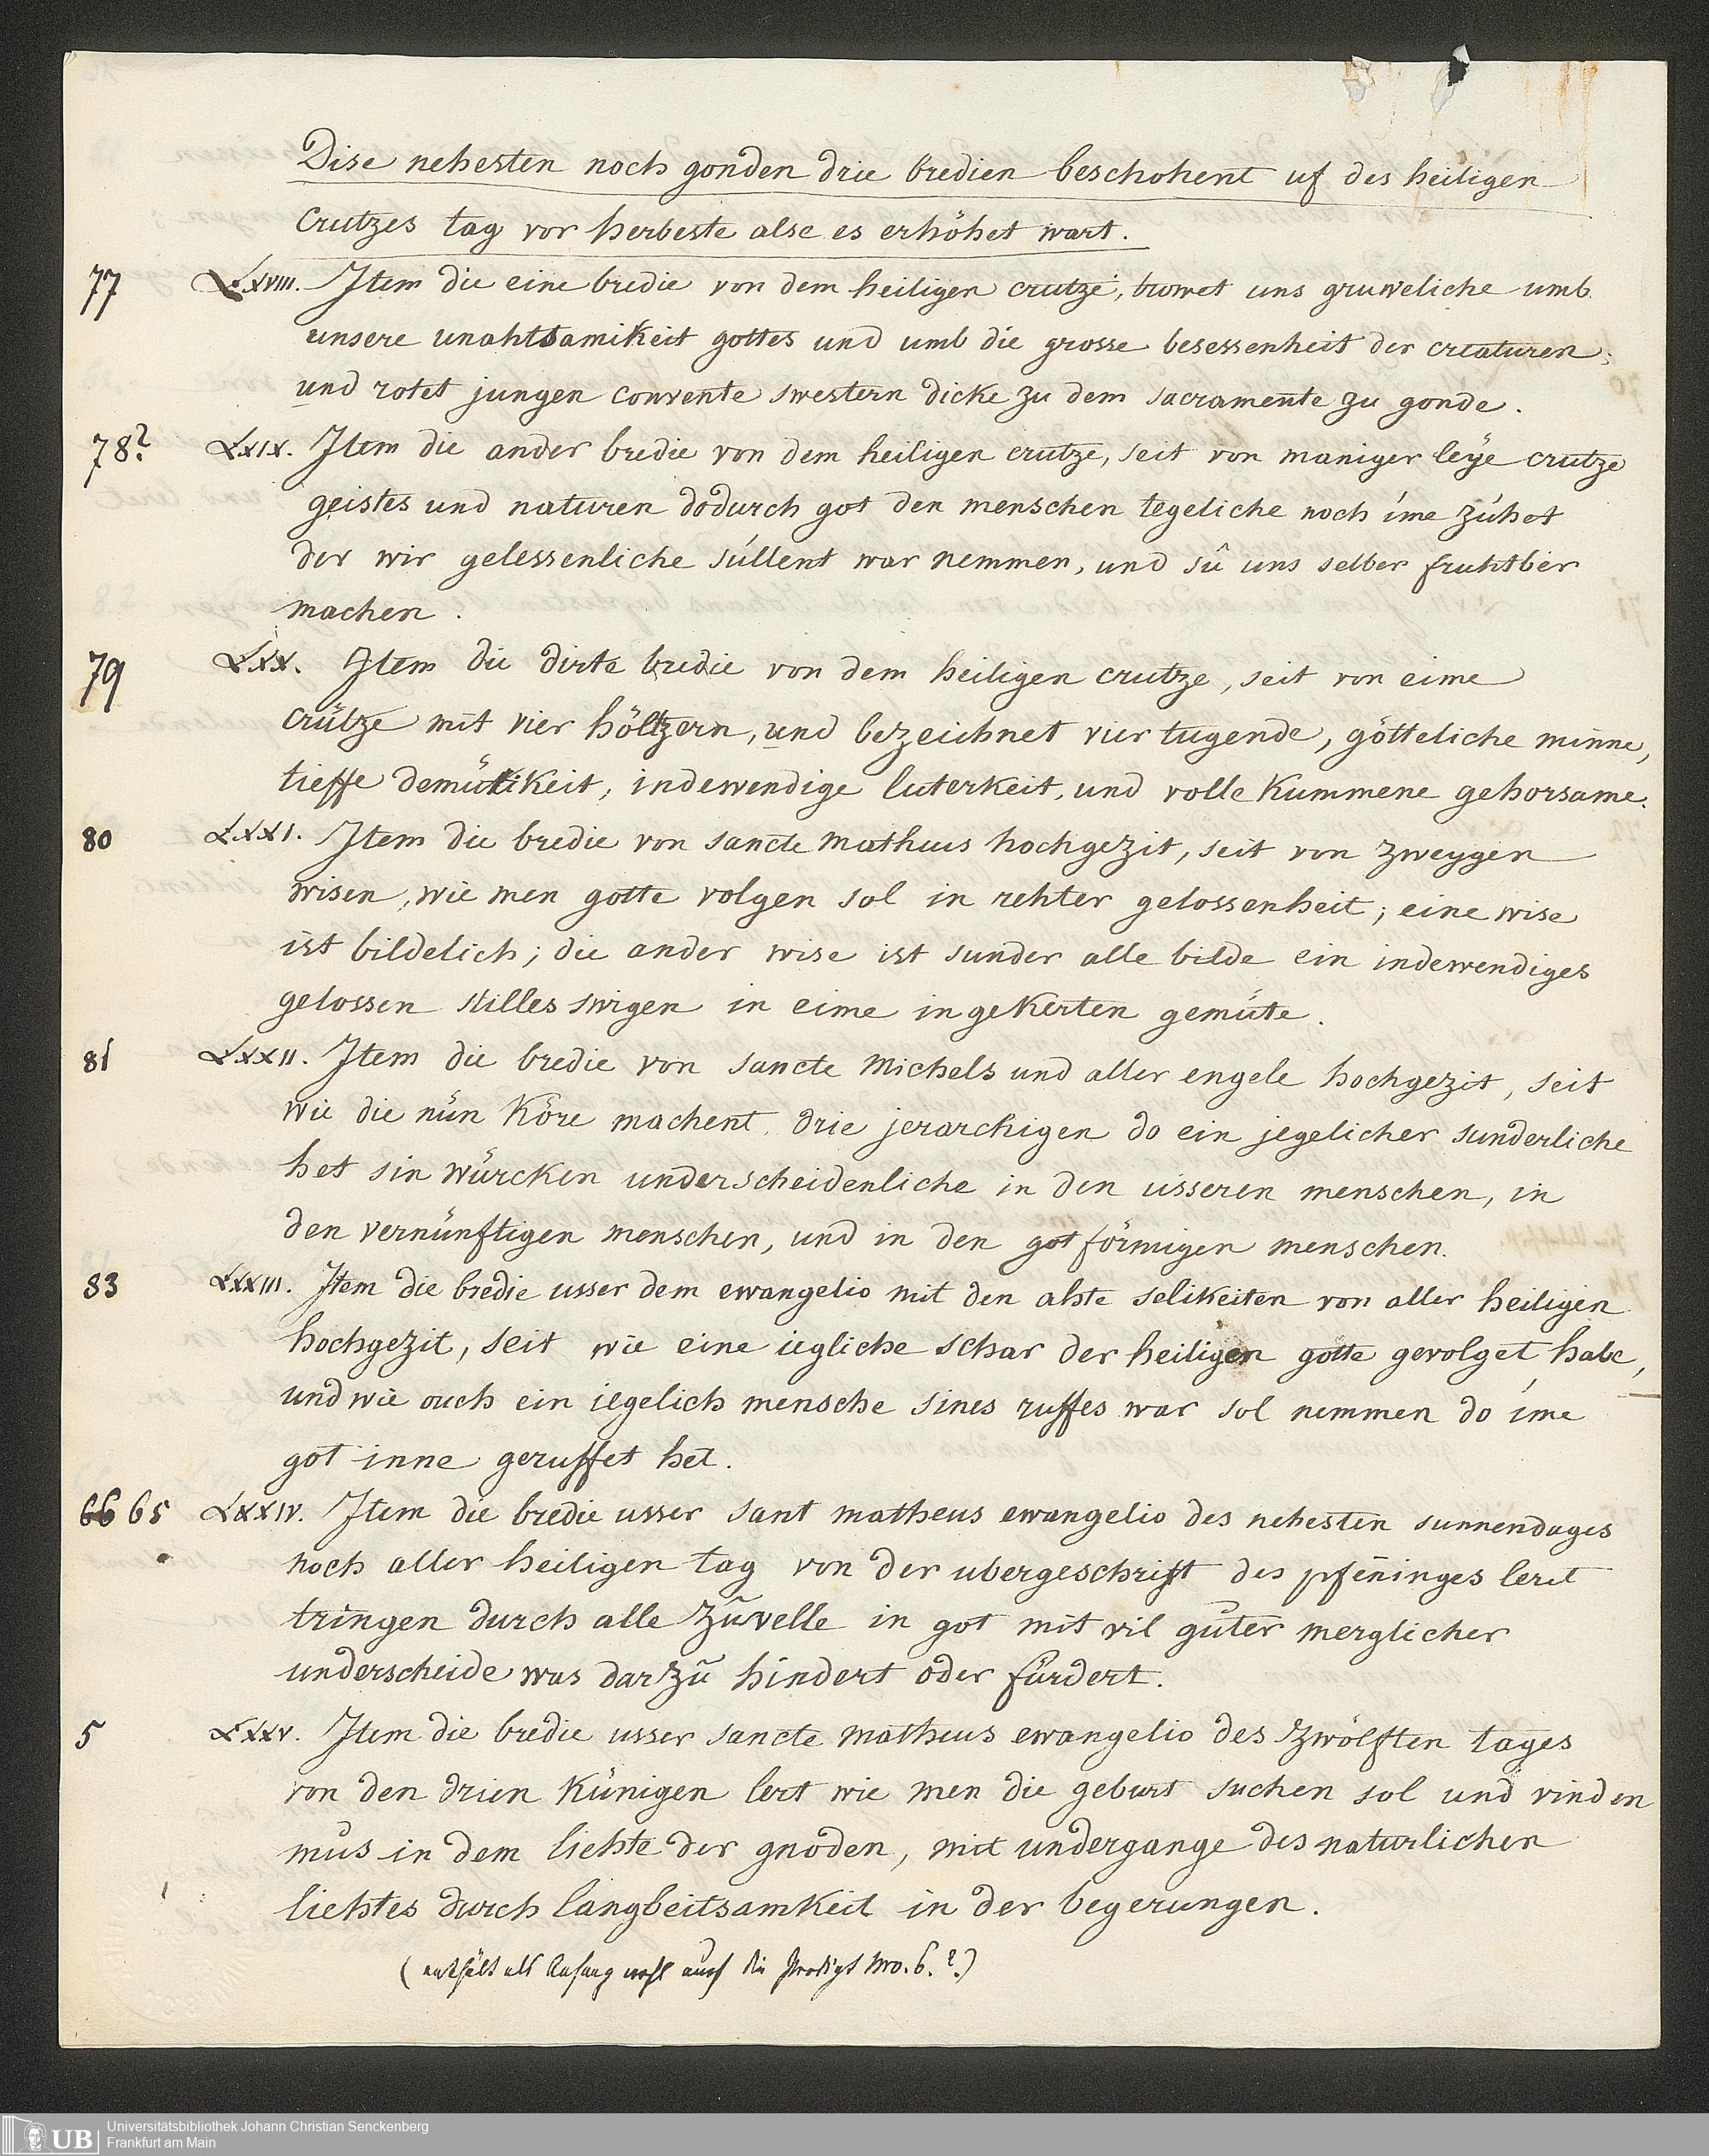 Dise nehesten noch gonden drie bredien beschohent uf des heiligen
Crutzes tag vor herbeste alse es erhöhet wart.
77 LXVIII. Item die eine bredie von dem heiligen crutze, trowet uns gruweliche umb
unsere unahtsamikeit gottes und umb die grosse besessenheit der creaturen;
und rotet jungen convente swestern dicke zu dem sacramente zu gonde.
78? LXIX. Item die ander bredie von dem heiligen crutze, seit von maniger leÿe crutze
geistes und naturen dodurch got den menschen tegeliche noch ime zúhet
der wir gelessenliche súllent war nemmen, und sû uns selber fruhtber
machen.
79 LXX. Item die dirte bredie von dem heiligen crutze, seit von eime
crütze mit vier höltzern, und bezeichnet vier tugende, götteliche minne,
tieffe demütikeit, indewendige luterkeit, und volle kummene gehorsame.
80 LXXI. Item die bredie von sancte matheus hochgezit, seit von zweygen
wisen, wie men gotte volgen sol in rehter gelossenheit; eine wise
ist bildelich; die ander wise ist sunder alle bilde ein indewendiges
gelossen stilles swigen in eime ingekerten gemüte.
81 LXXII. Item die bredie von sancte Michels und aller engele hochgezit, seit
wie die nún Köre machent drie jerarchigen do ein jegelicher sunderliche
het sin würcken underscheidenliche in den usseren menschen, in
den vernúnftigen menschen, und in den gotförmigen menschen.
83 LXXIII. Item die bredie usser dem ewangelio mit den ahte selikeiten von aller heiligen
hochgezit, seit wie eine iegliche schar der heiligen gotte gevolget habe,
und wie ouch ein iegelich mensche sines ruffes war sol nemmen do ime
got inne geruffet het.
66 65 LXXIV. Item die bredie usser sant matheus ewangelio des nehesten sunnendages
noch aller heiligen tag von der ubergeschrift des pfeninges leret
tringen durch alle zuvelle in got mit vil guter merglicher
underscheide was darzu hindert oder fúrdert.
5 LXXV. Item die bredie usser sancte matheus ewangelio des zwölften tages
von den drien Kúnigen lert wie men die geburt suchen sol und vinden
mus in dem liehte der gnoden, mit undergange des naturlichen
liehtes durch langbeitsamkeit in der begerungen.
(enthält als Anfang wohl auch die Predigt Nro. 6. ?)
Universitätsbibliothek Johann Christian Senckenberg
Frankfurt am Main
UB